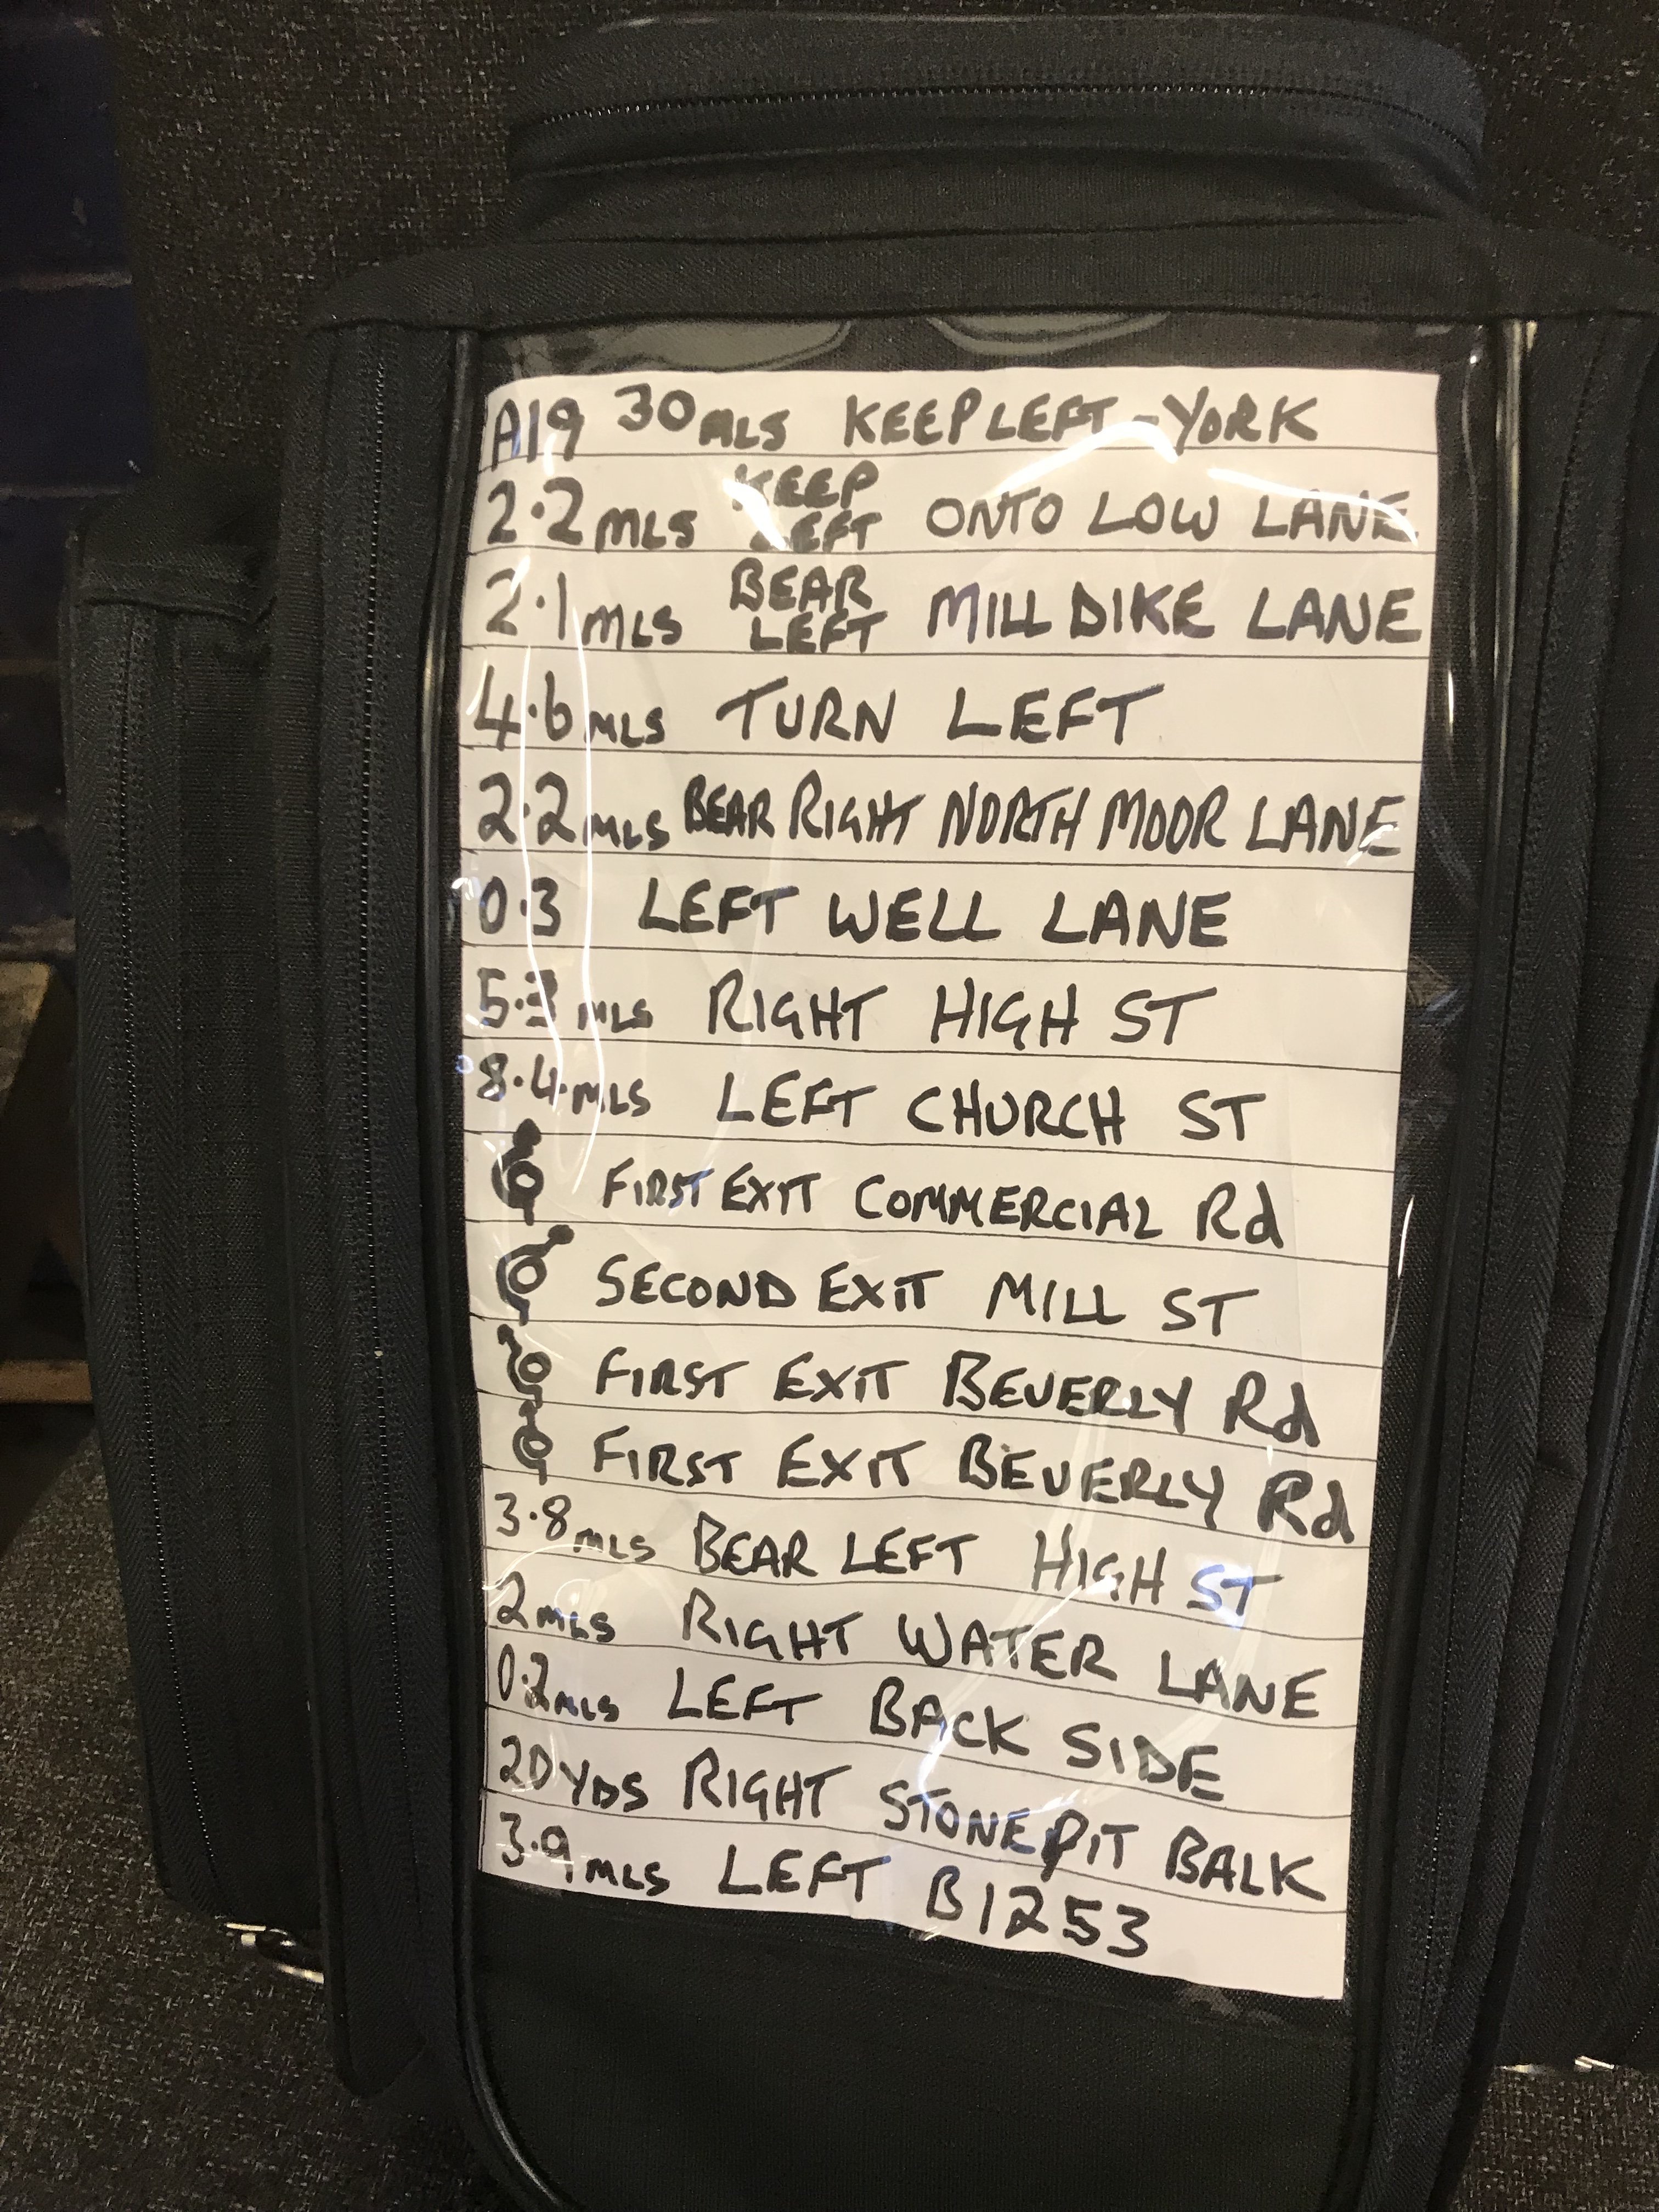 A19 30MLS KEEP LEFT - YORK
2.2MLS KEEP LEFT ONTO LOW LANE
2.1MLS BEAR LEFT MILL DIKE LANE
4.6MLS TURN LEFT
2.2MLS BEAR RIGHT NORTH MOOR LANE
0.3 LEFT WELL LANE
5.3MLS RIGHT HIGH ST
8.4MLS LEFT CHURCH ST
FIRST EXIT COMMERCIAL Rd
SECOND EXIT MILL ST
FIRST EXIT BEVERLY Rd
FIRST EXIT BEVERLY Rd
3.8MLS BEAR LEFT HIGH ST
2MLS RIGHT WATER LANE
0.2MLS LEFT BACK SIDE
20YDS RIGHT STONEPIT BALK
3.9MLS LEFT B1253